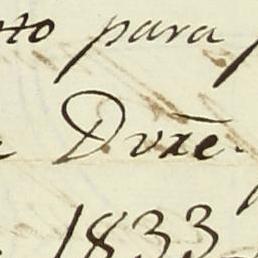 nto para
Dvre.
1833